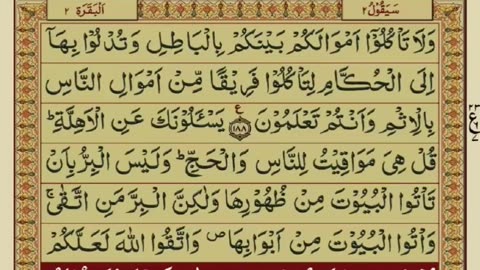 سَيَقُوْلُ ٢ اَلْبَقَرَة ٢
وَلَا تَاْكُلُوْٓا اَمْوَالَكُمْ بَيْنَكُمْ بِالْبَاطِلِ وَتُدْلُوْا بِهَآ
اِلَى الْحُكَّامِ لِتَاْكُلُوْا فَرِيْقًا مِّنْ اَمْوَالِ النَّاسِ
بِالْاِثْمِ وَاَنْتُمْ تَعْلَمُوْنَ ۝١٨٨ ع يَسْـَٔلُوْنَكَ عَنِ الْاَهِلَّةِ ؕ
قُلْ هِىَ مَوَاقِيْتُ لِلنَّاسِ وَالْحَجِّ ؕ وَلَيْسَ الْبِرُّ بِاَنْ
تَاْتُوا الْبُيُوْتَ مِنْ ظُهُوْرِهَا وَلٰكِنَّ الْبِرَّ مَنِ اتَّقٰى ۚ
وَاْتُوا الْبُيُوْتَ مِنْ اَبْوَابِهَا ۪ وَاتَّقُوا اللّٰهَ لَعَلَّكُمْ